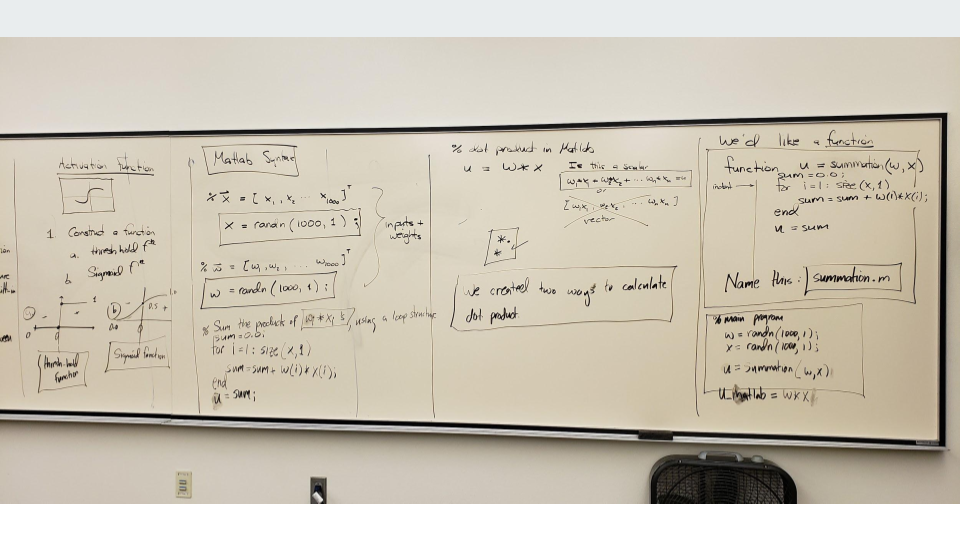 Activation function
1. Construct a function
a. threshhold fⁿ
b. Sigmoid fⁿ
a
1
0
0
b
1.0
0.5
0.0
0
thresh-hold
function
Sigmoid function
Matlab Syntax
% x = [ x₁, x₂ ... x₁₀₀₀ ]ᵀ
x = randn(1000, 1);
inputs +
weights
% w = [w₁, w₂, ... w₁₀₀₀]ᵀ
w = randn(1000, 1);
% Sum the products of wᵢ * xᵢ's, using a loop structure
sum=0.0;
for i=1: size(x,1)
sum=sum + w(i)*x(i);
end
u = sum;
% dot product in Matlab
u = w*x
Is this a scalar
w₁*x₁ + w₂*x₂ + ... wₙ*xₙ = u
or
[w₁x₁, w₂x₂ ... wₙxₙ]
vector
*.
*
We created two ways to calculate
dot product.
We'd like a function
function u = summation(w, x)
sum=0.0;
for i=1: size(x,1)
sum=sum + w(i)*x(i);
end
u = sum
Name this: summation.m
% main program
w = randn(1000,1);
x = randn(1000,1);
u = summation(w,x)
u_matlab = w*x